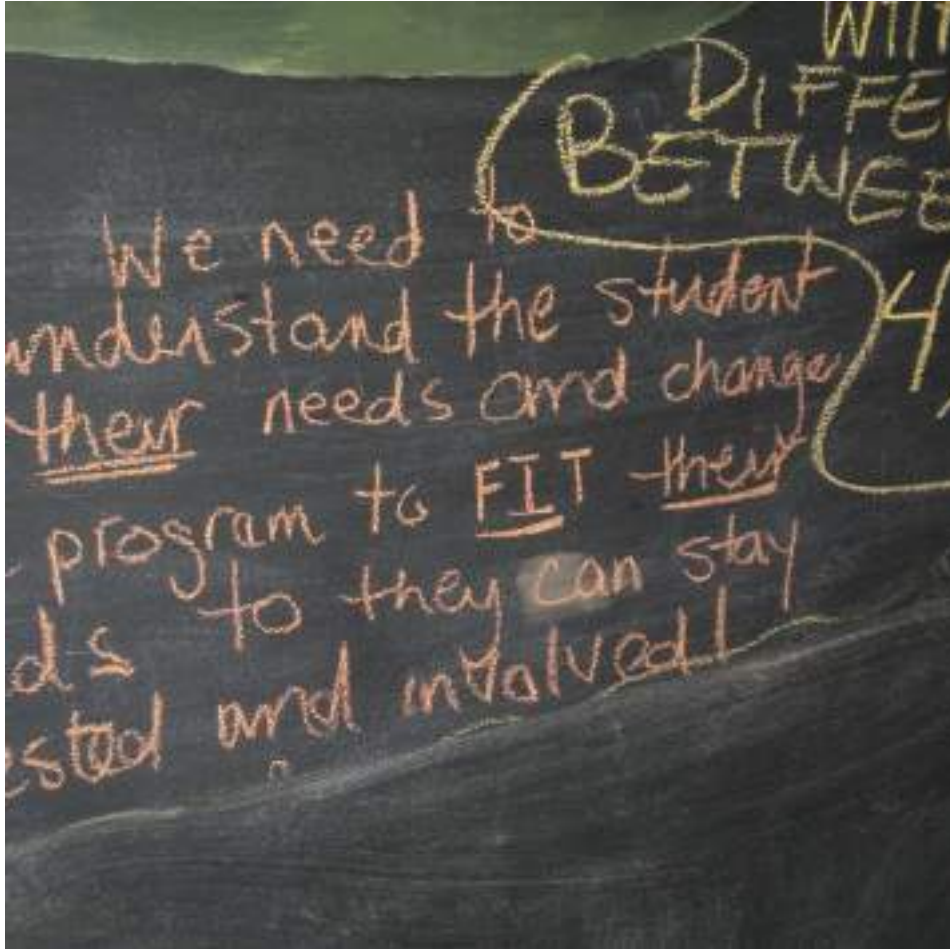 WITH
DIFFE
BETWEE
4
We need to
understand the student
their needs and change
program to FIT their
ds to they can stay
ested and involved!